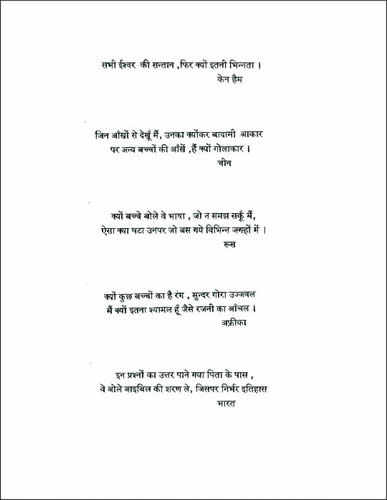 सभी ईश्वर की सन्तान ,फिर क्यों इतनी भिन्नता ।
केन हैम
जिन आँखों से देखूँ मैं, उनका क्योंकर बादामी आकार
पर अन्य बच्चों की आँखें ,हैं क्यों गोलाकार ।
चीन
क्यों बच्चे बोले वे भाषा , जो न समझ सकूँ मैं,
ऐसा क्या घटा उनपर जो बस गये विभिन्न जगहों में ।
रूस
क्यों कुछ बच्चों का है रंग , सुन्दर गोरा उज्जवल
मैं क्यों इतना श्यामल हूँ जैसे रजनी का आँचल ।
अफ्रीका
इन प्रश्नों का उत्तर पाने गया पिता के पास ,
वे बोले बाइबिल की शरण ले, जिसपर निर्भर इतिहास
भारत